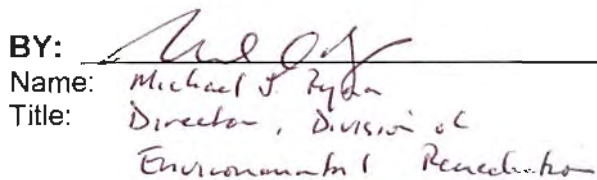 BY:
Name: Michael J. Ryan
Title: Director, Division of
Environmental Remediation